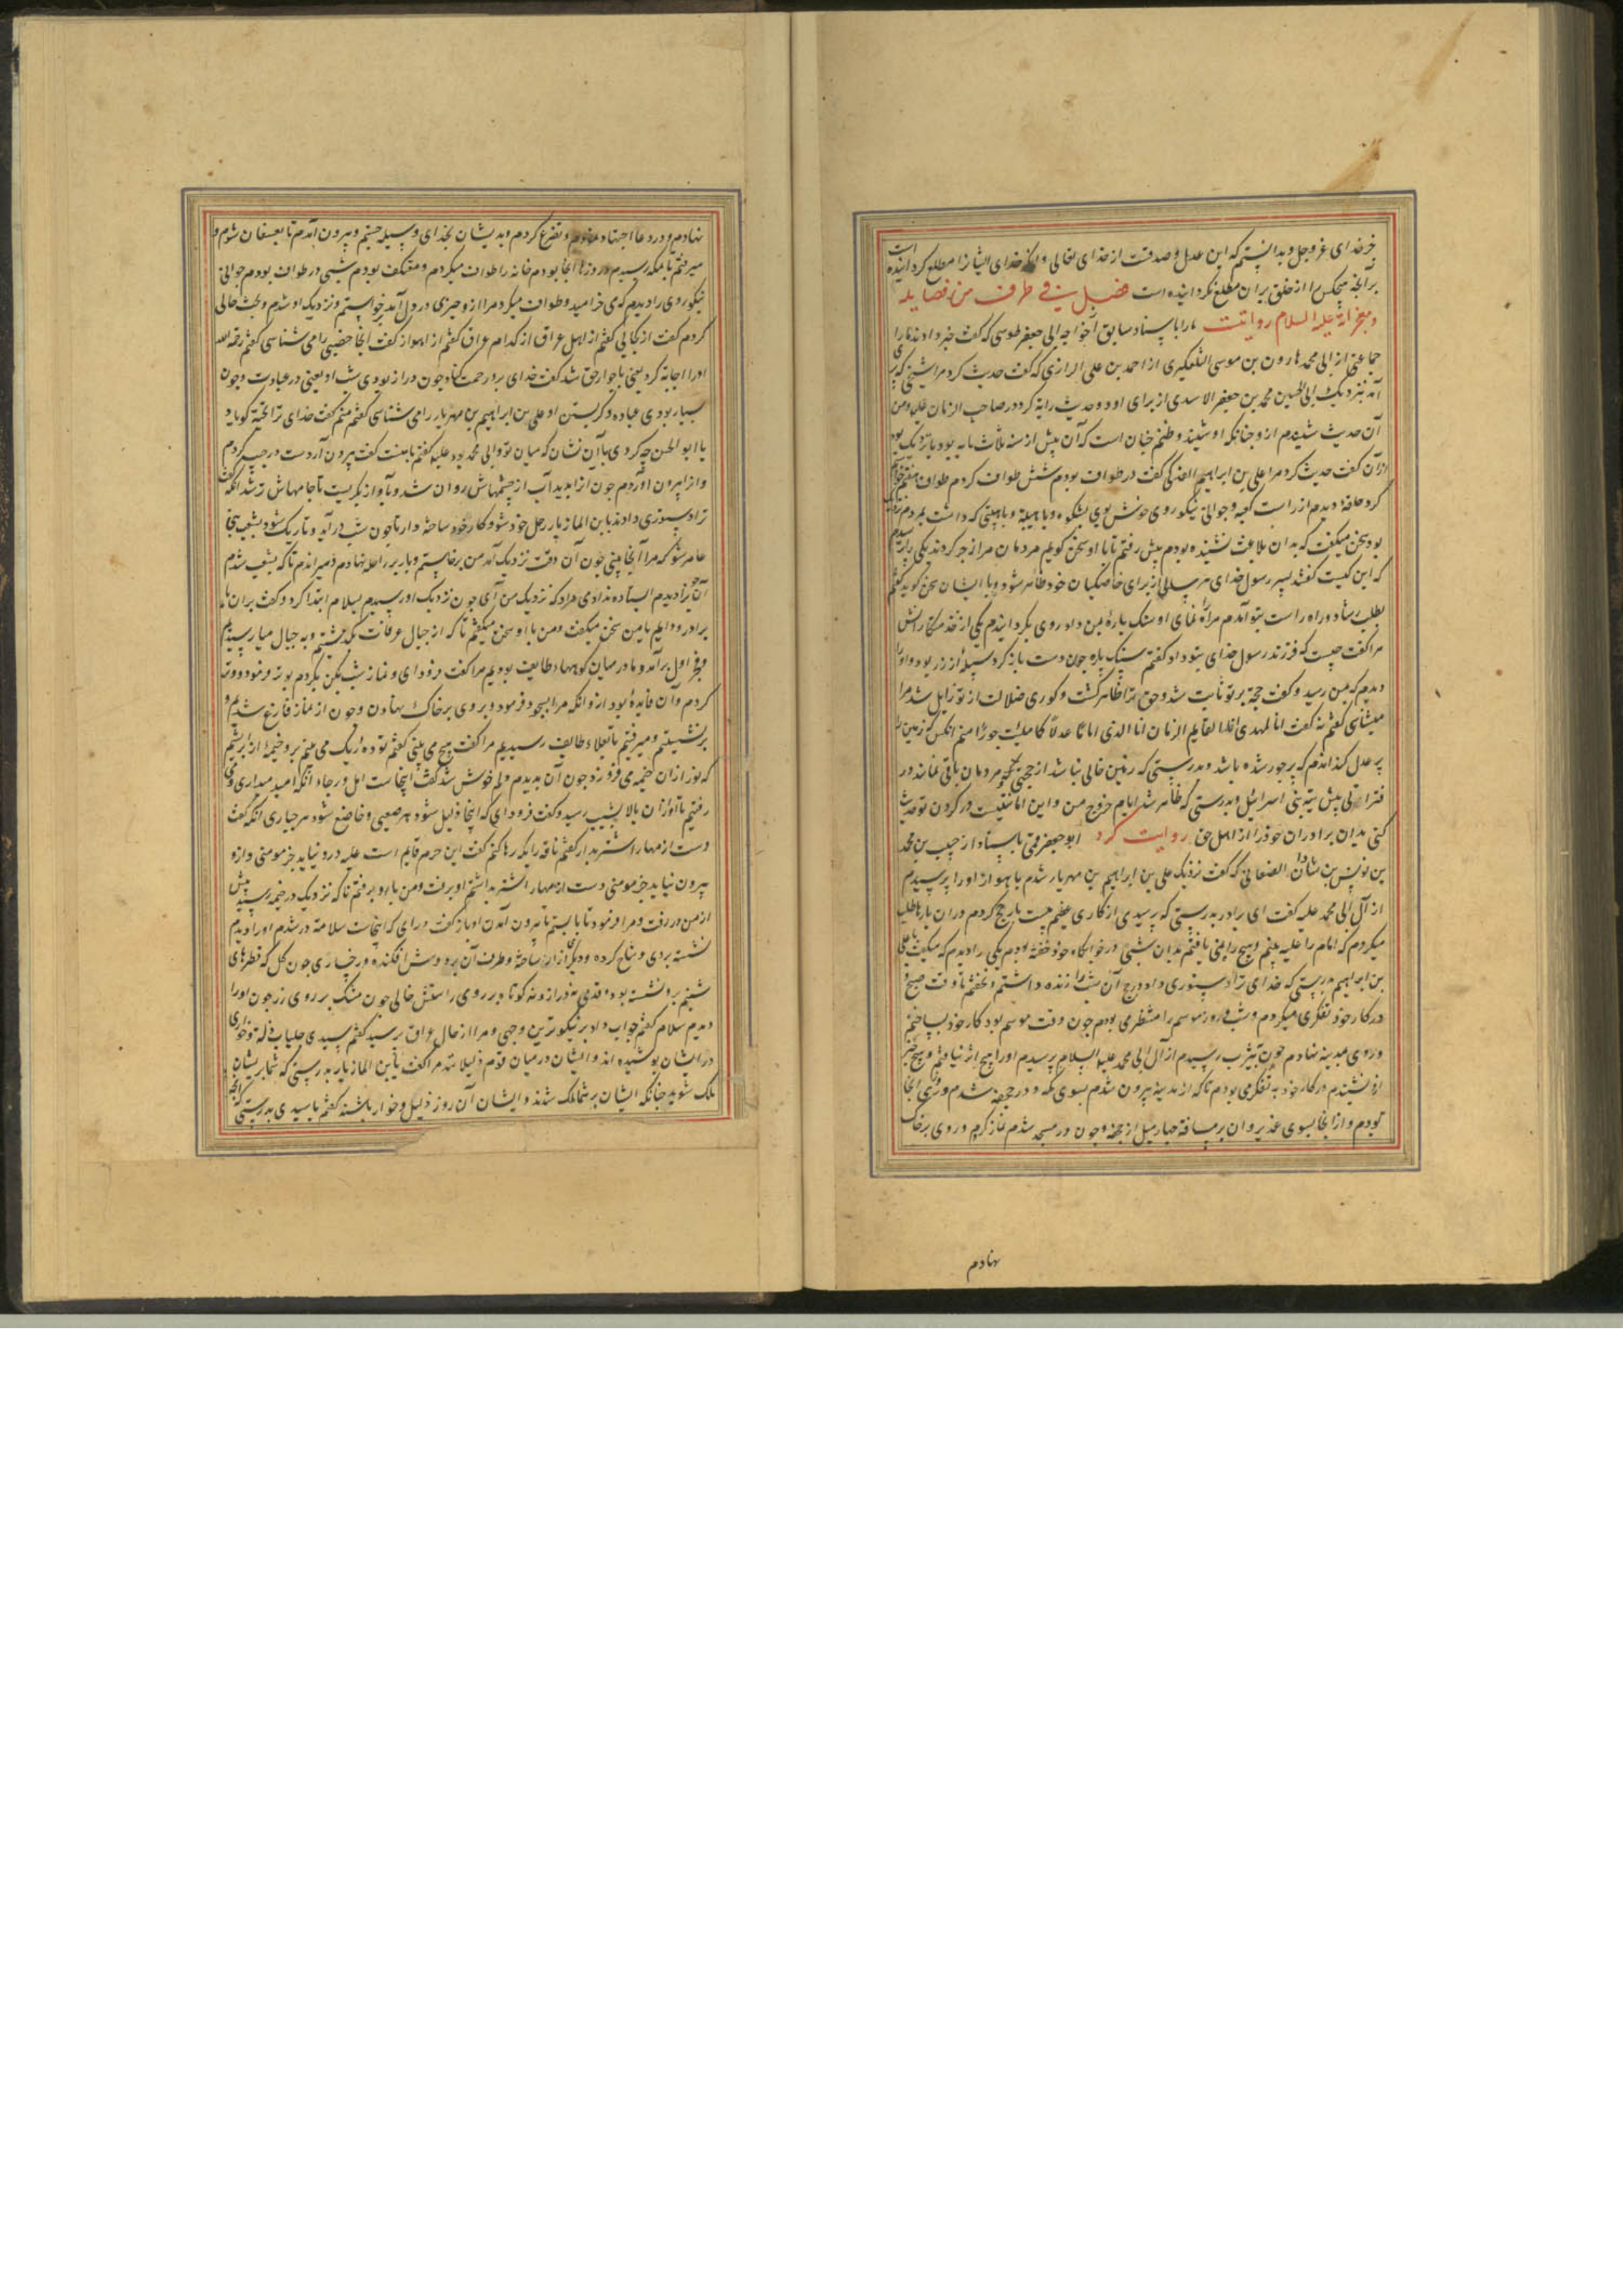 خبر خدای عز و جل و بدانستم که این عدل و صدقت از خدای تعالی و آنکه خدای ایشانرا مطلع گردانیده است
بر آنچه هیچکس را از خلق بران مطلع نکردانیده است فصل فی طرف من فضایله
و معجزاته علیه السلام روایتست ما را باسناد سابق خواجه ابی جعفر طوسی که گفت خبر دادند ما را
جماعتی از ابی محمد هارون بن موسی التلعکبری از احمد بن علی الرازی که گفت حدیث کرد مرا شیخی که
آمد بنزدیک ابی الحسین محمد بن جعفر الاسدی از برای او دو حدیث رایة کرد در صاحب الزمان علیه و من
آن حدیث شنیدم ازو جنانکه او شنید و ظنم جنان است که آن پیش از سنه ثلاث مایه بود یا نزدیک بود
ازان گفت حدیث کرد مرا علی بن ابراهیم الفدکی گفت در طواف بودم شش طواف کردم طواف هفتم خواستم
کرد حلقهٔ دیدم از راست کعبه و جوانی نیکوروی خوش بوی بشکوه و با هیبة که داشت بمردم نزدیک
بود سخن میگفت که بدان بلاغت نشنیده بودم پیش رفتم تا با او سخن گویم مردمان مرا زجر کردند یکی را پرسیدم
که این کیست گفتند پسر رسول خدای هر سالی از برای خاصکیان خود ظاهر شود و با ایشان سخن گوید گفتم
بطلب رشاد و راه راست بتو آمدم مرا راه نمای او سنک پارهٔ بمن داد روی بگردانیدم یکی از خدمتکارانش
مرا گفت چیست که فرزند رسول خدای بتو داد گفتم سنک پاره جون دست باز کرد سبیکهٔ از زر بود و او را
دیدم که بمن رسید و گفت حجة بر تو ثابت شد و حق ترا ظاهر گشت و کوری ضلالت از تو زایل شد مرا
میشناسی گفتم نه گفت انا المهدی انا القایم الزمان انا الذی املاها عدلا کما ملئت جورا منم آنکس که زمین را
پر عدل گردانم که پر جور شده باشد و بدرستی که زمین خالی نباشد از حجتی و مردمان باقی نمانند در
فترة بیش از تیه بنی اسرائیل و بدرستی که ظاهر شد ایام خروج من و این امانتیست در گردن تو حدیث
کنی بدان برادران خوذرا از اهل حق روایت کرد ابو جعفر قمی باسناد از حبیب بن محمد
بن یونس بن شاذان الصنعانی که گفت نزدیک علی بن ابراهیم بن مهزیار شدم باهواز او را پرسیدم
از آل ابی محمد علیه گفت ای برادر بدرستی که پرسیدی از کاری عظیم بیست بار حج کردم دران بارها طلب
میکردم که امام را علیه بینم و هیچ راهی نیافتم بدان شبی در خوابگاه خوذ خفته بودم یکی را دیدم که میگفت یا علی
بن ابراهیم بدرستی که خدای ترا دستوری داد در حج آن شب را زنده داشتم و نخفتم تا وقت صبح و
در کار خوذ تفکری میکردم و شب و روز موسم را منتظر می بودم جون وقت موسم بود کار خوذ بساختم
و روی بمدینه نهادم جون بیثرب رسیدم از آل ابی محمد علیه السلام پرسیدم او را هیچ اثر نیافتم و هیچ خبر
ازو نشنیدم در کار خود بتفکر می بودم تا که از مدینه بیرون شدم بسوی مکه و در جحفه شدم و روزی آنجا
ببودم و از انجا بسوی غدیر و آن بر مسافة چهار میل از جحفه و جون در مسجد شدم نماز کردم و روی بر خاک
نهادم
نهادم و در دعا اجتهاد نمودم و تضرع کردم و بدیشان بخدای وسیله جستم و بیرون آمدم تا بعسفان شوم و
میرفتم تا بمکه رسیدم و روزها آنجا بودم خانه را طواف میکردم و معتکف بودم شبی در طواف بودم جوانی
نیکوروی را دیدم که می خرامید و طواف میکرد مرا ازو چیزی در دل آمد برخواستم و نزدیک او شدم و بحث حالی
کردم گفت از کجایی گفتم از اهل عراق گفت از کدام عراق گفتم از اهواز گفت آنجا خضیبی را می شناسی گفتم رحمه الله
او را اجابة کرد یعنی با جوار حق شد گفت خدای برو رحمت کناد جون دراز بودی شب او یعنی در عبادت و جون
بسیار بودی عباده و گریستن او علی بن ابراهیم بن مهزیار را می شناسی گفتم منم گفت خدای ترا تحیة گویاد
یا ابو الحسن چه کردی با آن نشان که میان تو و ابی محمد بود علیه گفتم با منست گفت بیرون آر دست در جیب کردم
و از ابیرون آوردم جون آنرا بدید آب از چشمهاش روان شد و بآواز بگریست تا جامهاش تر شد آنکه گفت
ترا دستوری دادند یا بن المازیار برحل خوذ شو و کار خوذ ساخته دار تا جون شب درآید و تاریک شود بشعب بنی
عامر شو که مرا آنجا بینی جون آن وقت نزدیک آمد من برخاستم و بار بر راحله نهادم و میراندم تا که بشعب شدم
آن جوانرا دیدم ایستاده ندا می داد که نزدیک من آی جون نزدیک او رسیدم بسلام ابتدا کرد و گفت بران ما
برادر و او با من سخن میگفت و من با او سخن میگفتم تا که از جبال عرفات بگذشتیم و به جبال منا رسیدیم
و فجر اول برآمد و ما در میان کوههاء طایف بودیم مرا گفت فروذ ای و نماز شب بکن بکردم بوتر فرمود و وتر
کردم و آن فایدهٔ بود ازو آنکه مرا بسجود فرمود و بروی بر خاک نهادن و جون از نماز فارغ شدیم و
برنشستیم و میرفتیم تا بعلاء طایف رسیدیم مرا گفت هیچ می بینی گفتم تودهٔ ریک می بینم برو خیمهٔ از ابریشم
که نور ازان خیمه می فروزد جون آن بدیدم دلم خوش شد گفت اینجاست امل و رجاء آنکه امید میداری و می
رفتیم تا او ازان بالا بشیب رسید و گفت فروذ ای که اینجا ذلیل شود هر صعبی و خاضع شود هر جباری آنکه گفت
دست از مهار اشتر بدار گفتم ناقه را بکه رها کنم گفت این حرم قایم است علیه درو نیاید جز مومنی و ازو
بیرون نیاید جز مومنی دست از مهار اشتر بداشتم او برفت و من با او برفتم تا که نزدیک در خیمه رسید پیش
از من در رفت و مرا فرمود تا بایستم تا بیرون آمدن او باز گفت در آی که اینجاست سلامة در شدم او را دیدم
نشسته بردی وشاح کرده و دیگری ازار ساخته و طرف آن بر دوش افکنده و رخساری جون گل که قطرهای
شبنم برو نشسته بود و قدی نه دراز و نه کوتاه بر روی راستش خالی جون مشک بر روی زر جون او را
دیدم سلام گفتم جواب داد بر نیکوترین وجهی و مرا از حال عراق پرسید گفتم سیدی جلباب ذلة و خواری
در ایشان پوشیده اند و ایشان در میان قوم ذلیلاند مرا گفت یا بن المازیار بدرستی که شما بریشان
ملک شوید جنانکه ایشان بر شما ملک شدند و ایشان آن روز ذلیل و خوار باشند گفتم یا سیدی بدرستی که آنجا